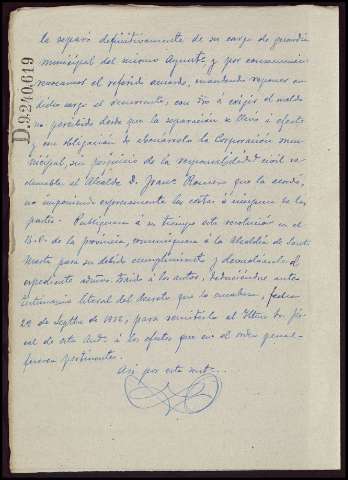 D9240619
le separó definitivamente de su cargo de guardia
municipal del mismo Ayunto y por consecuencia
revocamos el referido acuerdo, mandando reponer en
dicho cargo al demurrente, con dro a exijir el sueldo
no percibido desde que la separación se llevó á efecto
y con obligación de abonárselo la Corporación mu-
nicipal, sin perjuicio de la responsabilidad civil re-
clamable al Alcalde D. Franc. Romero que la acordó,
no imponiendo expresamente las costas á ninguna de las
partes. Publíquese á su tiempo esta resolución en el
B.O. de la provincia, comuníquese á la Alcaldía de Santa
Marta para su debido cumplimiento y devuélvase el
expediente admvo. traído á los autos, deduciéndose antes
testimonio literal del decreto que lo encabeza, fecha
22 de Septbre de 1932, para remitirlo al Iltmo Sr. Fis-
cal de esta Aud. á los efectos que en el orden penal
fueren pertinentes.
Así por esta